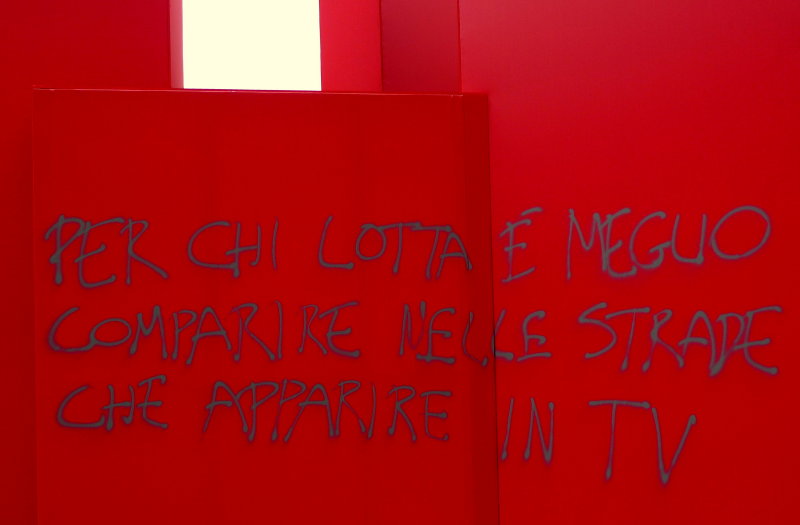 PER CHI LOTTA É MEGLIO
COMPARIRE NELLE STRADE
CHE APPARIRE IN TV